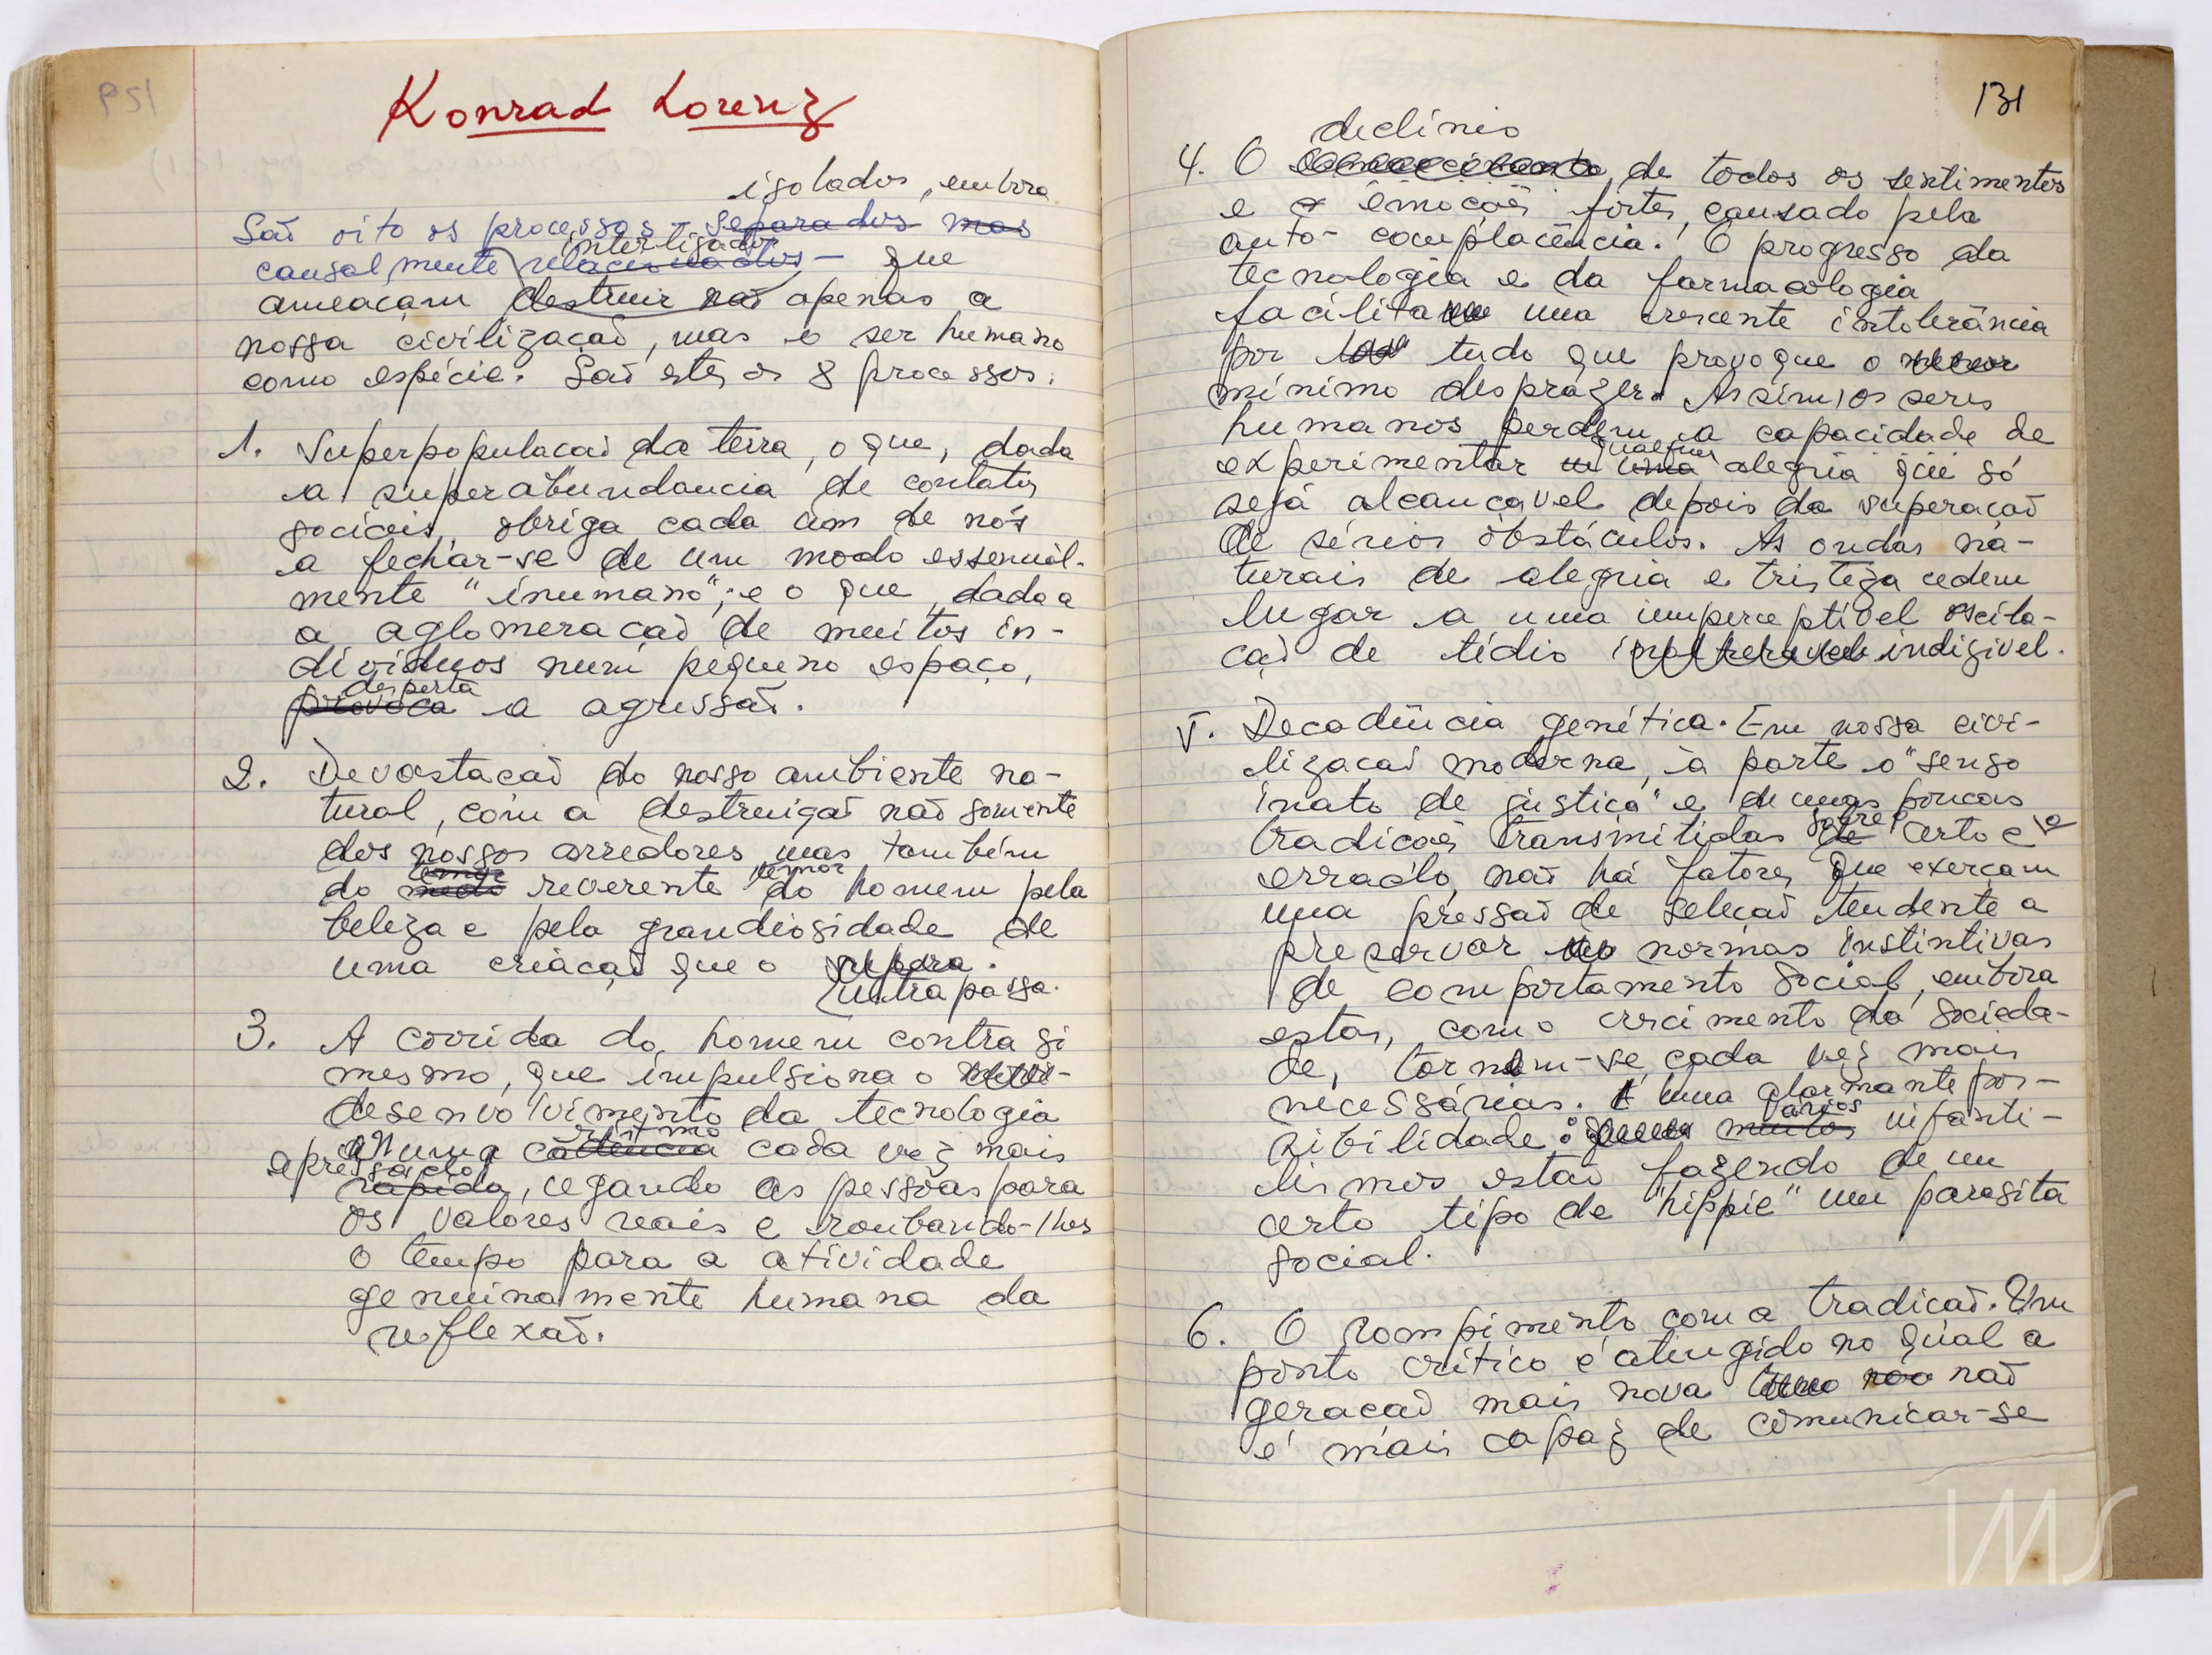 Konrad Lorenz
isolados, embora
Saõ oito os processos - separados mas
interligados
causalmente relacionados - que
ameaçam destruir naõ apenas a
nossa civilizaçaõ, mas o ser humano
como espécie. Saõ estes os 8 processos:
1. Superpopulacaõ da terra, o que, dada
a superabundancia de contatos
sociais, obriga cada um de nós
a fechar-se de um modo essencial-
mente "inumano"; e o que, dada a
a aglomeracaõ de muitos in-
divíduos num pequeno espaço,
desperta
provoca a agressaõ.
2. Devastacaõ do nosso ambiente na-
tural, com a destruiçaõ naõ somente
dos nossos arredores mas também
temor temor
do medo reverente do homem pela
beleza e pela grandiosidade de
uma criaçaõ que o supera.
ultrapassa.
3. A corrida do homem contra si
mesmo, que impulsiona o
desenvolvimento da tecnologia
ritmo
numa cadência cada vez mais
apressado
rápida, cegando as pessoas para
os valores reais e roubando-lhes
o tempo para a atividade
genuinamente humana da
reflexaõ.
131
declínio
4. O de todos os sentimentos
e emoçoẽs fortes, causado pela
auto-complacência. O progresso da
tecnologia e da farmacologia
facilita uma crescente intolerância
por tudo que provoque o menor
mínimo desprazer. Assim, os seres
humanos perdem a capacidade de
qualquer
experimentar uma alegria que só
seja alcançavel depois da superaçaõ
de sérios obstáculos. As ondas na-
turais de alegria e tristeza cedem
lugar a uma imperceptível oscila-
caõ de tédio indizivel.
5. Decadência genética. Em nossa civi-
lizacaõ moderna, à parte o "senso
inato de justiça" e de umas poucas
sobre o
tradiçoẽs transmitidas de certo e o
errado, naõ há fatores que exerçam
uma pressaõ de seleçaõ tendente a
preservar normas instintivas
de comportamento social, embora
estas, com o crescimento da socieda-
de, tornem-se cada vez mais
necessárias. Uma alarmante pos-
vários
sibilidade: muitos infanti-
lismos estaõ fazendo de um
certo tipo de "hippie" um parasita
social.
6. O rompimento com a tradicaõ. Um
ponto crítico é atingido no qual a
geracaõ mais nova naõ
é mais capaz de comunicar-se
IMS